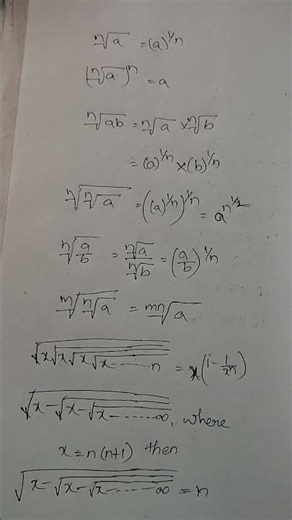 ⁿ√a = (a)^{1/n}
(ⁿ√a)^n = a
ⁿ√ab = ⁿ√a × ⁿ√b
= (a)^{1/n} × (b)^{1/n}
ⁿ√ⁿ√a = ((a)^{1/n})^{1/n} = a^{n^{1/2}}
ⁿ√(a/b) = ⁿ√a / ⁿ√b = (a/b)^{1/n}
ᵐ√ⁿ√a = ᵐⁿ√a
√x√x√x√x------n = x^(1-1/2n)
√x-√x-√x------∞, where
x = n(n+1) then
√x-√x-√x------∞ = n